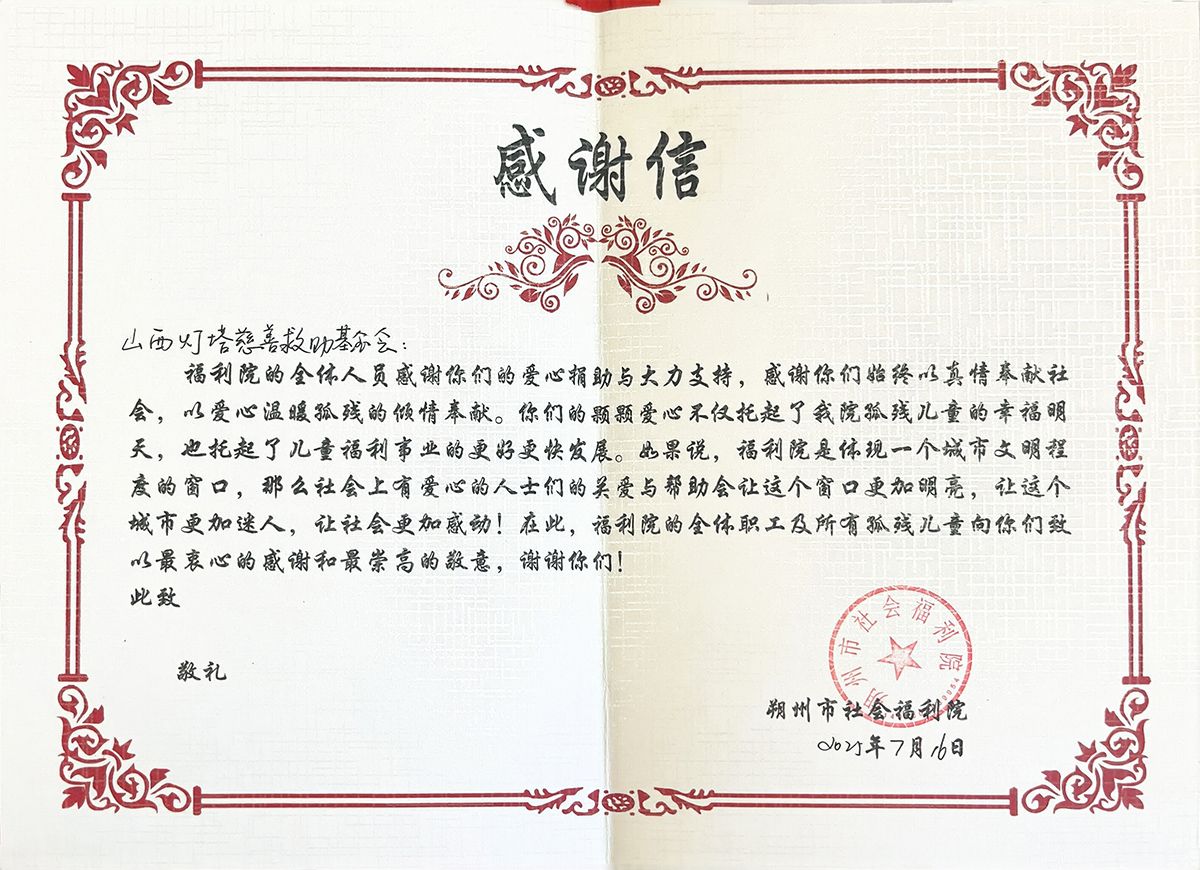 感谢信
山西灯塔慈善救助基金会：
福利院的全体人员感谢你们的爱心捐助与大力支持，感谢你们始终以真情奉献社
会，以爱心温暖孤残的倾情奉献。你们的颗颗爱心不仅托起了我院孤残儿童的幸福明
天，也托起了儿童福利事业的更好更快发展。如果说，福利院是体现一个城市文明程
度的窗口，那么社会上有爱心的人士们的关爱与帮助会让这个窗口更加明亮，让这个
城市更加迷人，让社会更加感动！在此，福利院的全体职工及所有孤残儿童向你们致
以最衷心的感谢和最崇高的敬意，谢谢你们！
此致
敬礼
朔州市社会福利院
朔州市社会福利院
2025年7月16日